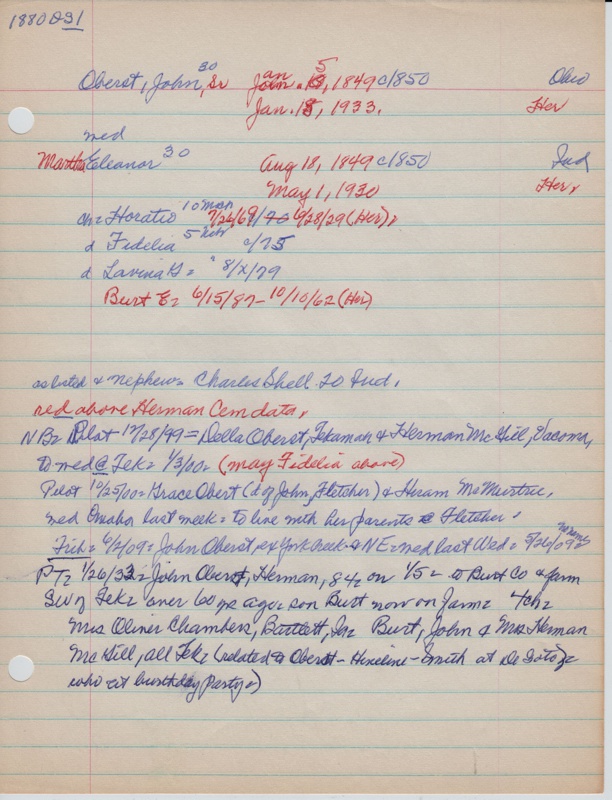 1880 @ 31
Oberst, John, 30 Sr Jan. 5, 1849 c/850 Ohio
Jan. 15, 1933. Her
med
Martha Eleanor 30 Aug 18, 1849 c/850 Ind
May 1, 1930 Her,
ch = Horatio 10 mon 7/26/69/ 6/28/29 (Her),
d Fidelia 5 c/75
d Lavina = " 8/x/79
Burt E = 6/15/87 - 10/10/62 (Her)
as listed & nephew = Charles Shell 20 Ind.
red above Herman Cem data,
NB = Pilot 12/28/99 = Della Oberst, Tekamah & Herman McGill, Tacoma,
to wed @ Tek = 1/3/00 = (may Fidelia above)
Pilot 10/25/00 = Grace Obert (d of John, Fletcher) & Hiram McMurtree,
wed Omaha last week = to live with her parents @ Fletcher.
= 6/4/09 = John Oberst, ex York Creek & NE = wed last Wed = 5/26/092 no name
PT = 1/26/33 = John Oberst, Herman, 84 = on 1/5 = to Burt Co & farm
SW of Tek = over 60 yrs ago = son Burt now on farm = 4 ch =
Mrs Oliver Chambers, Bartlett, Ia = Burt, John & Mrs Herman
McGill, all Tek = (related to Oberst - Hineline - Smith at De Soto =
who at birthday party =)